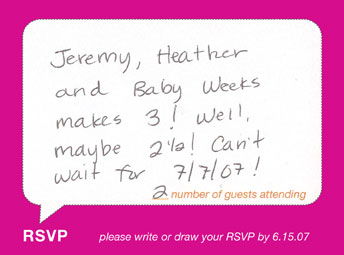 Jeremy, Heather
and Baby Weeks
makes 3! Well,
maybe 2½! Can't
wait for 7/7/07!
2 number of guests attending
RSVP please write or draw your RSVP by 6.15.07